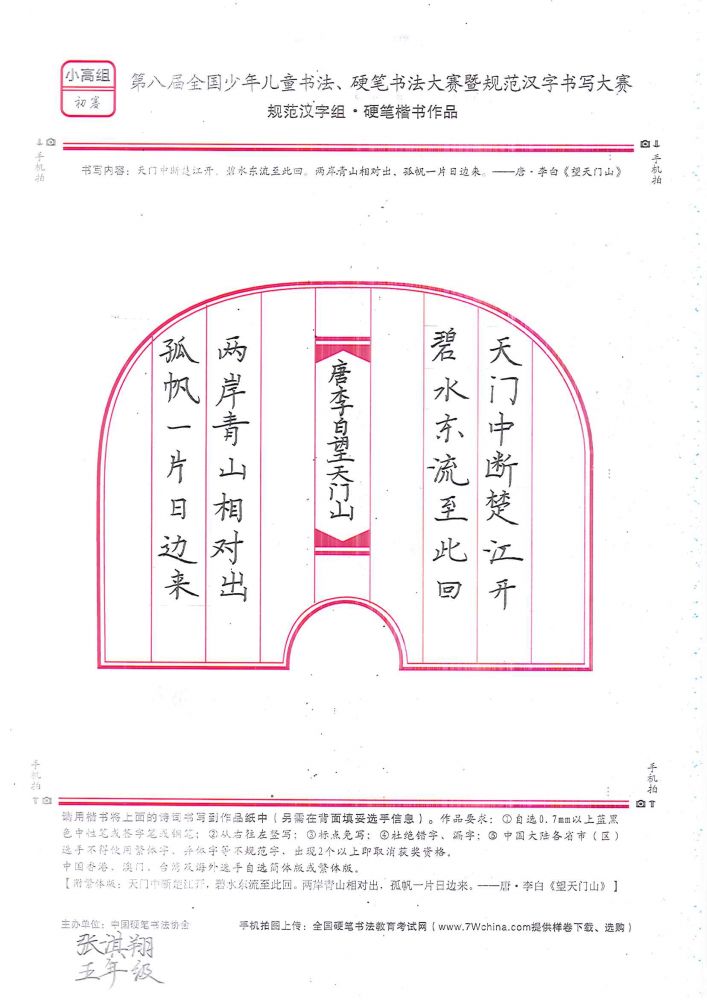 小高组
初赛
第八届全国少年儿童书法、硬笔书法大赛暨规范汉字书写大赛
规范汉字组·硬笔楷书作品
手机拍
手机拍
书写内容：天门中断楚江开，碧水东流至此回。两岸青山相对出，孤帆一片日边来。——唐·李白《望天门山》
天门中断楚江开
碧水东流至此回
唐李白望天门山
两岸青山相对出
孤帆一片日边来
手机拍
手机拍
请用楷书将上面的诗词书写到作品纸中（另需在背面填妥选手信息）。作品要求：①自选0.7mm以上蓝黑
色中性笔或签字笔或钢笔；②从右往左竖写；③标点免写；④杜绝错字、漏字；⑤中国大陆各省市（区）
选手不得使用繁体字、异体字等不规范字，出现2个以上即取消获奖资格。
中国香港、澳门、台湾及海外选手自选简体版或繁体版。
【附繁体版：天门中断楚江开，碧水东流至此回。两岸青山相对出，孤帆一片日边来。——唐·李白《望天门山》】
主办单位：中国硬笔书法协会
手机拍图上传：全国硬笔书法教育考试网（www.7Wchina.com提供样卷下载、选购）
张淇翔
五年级